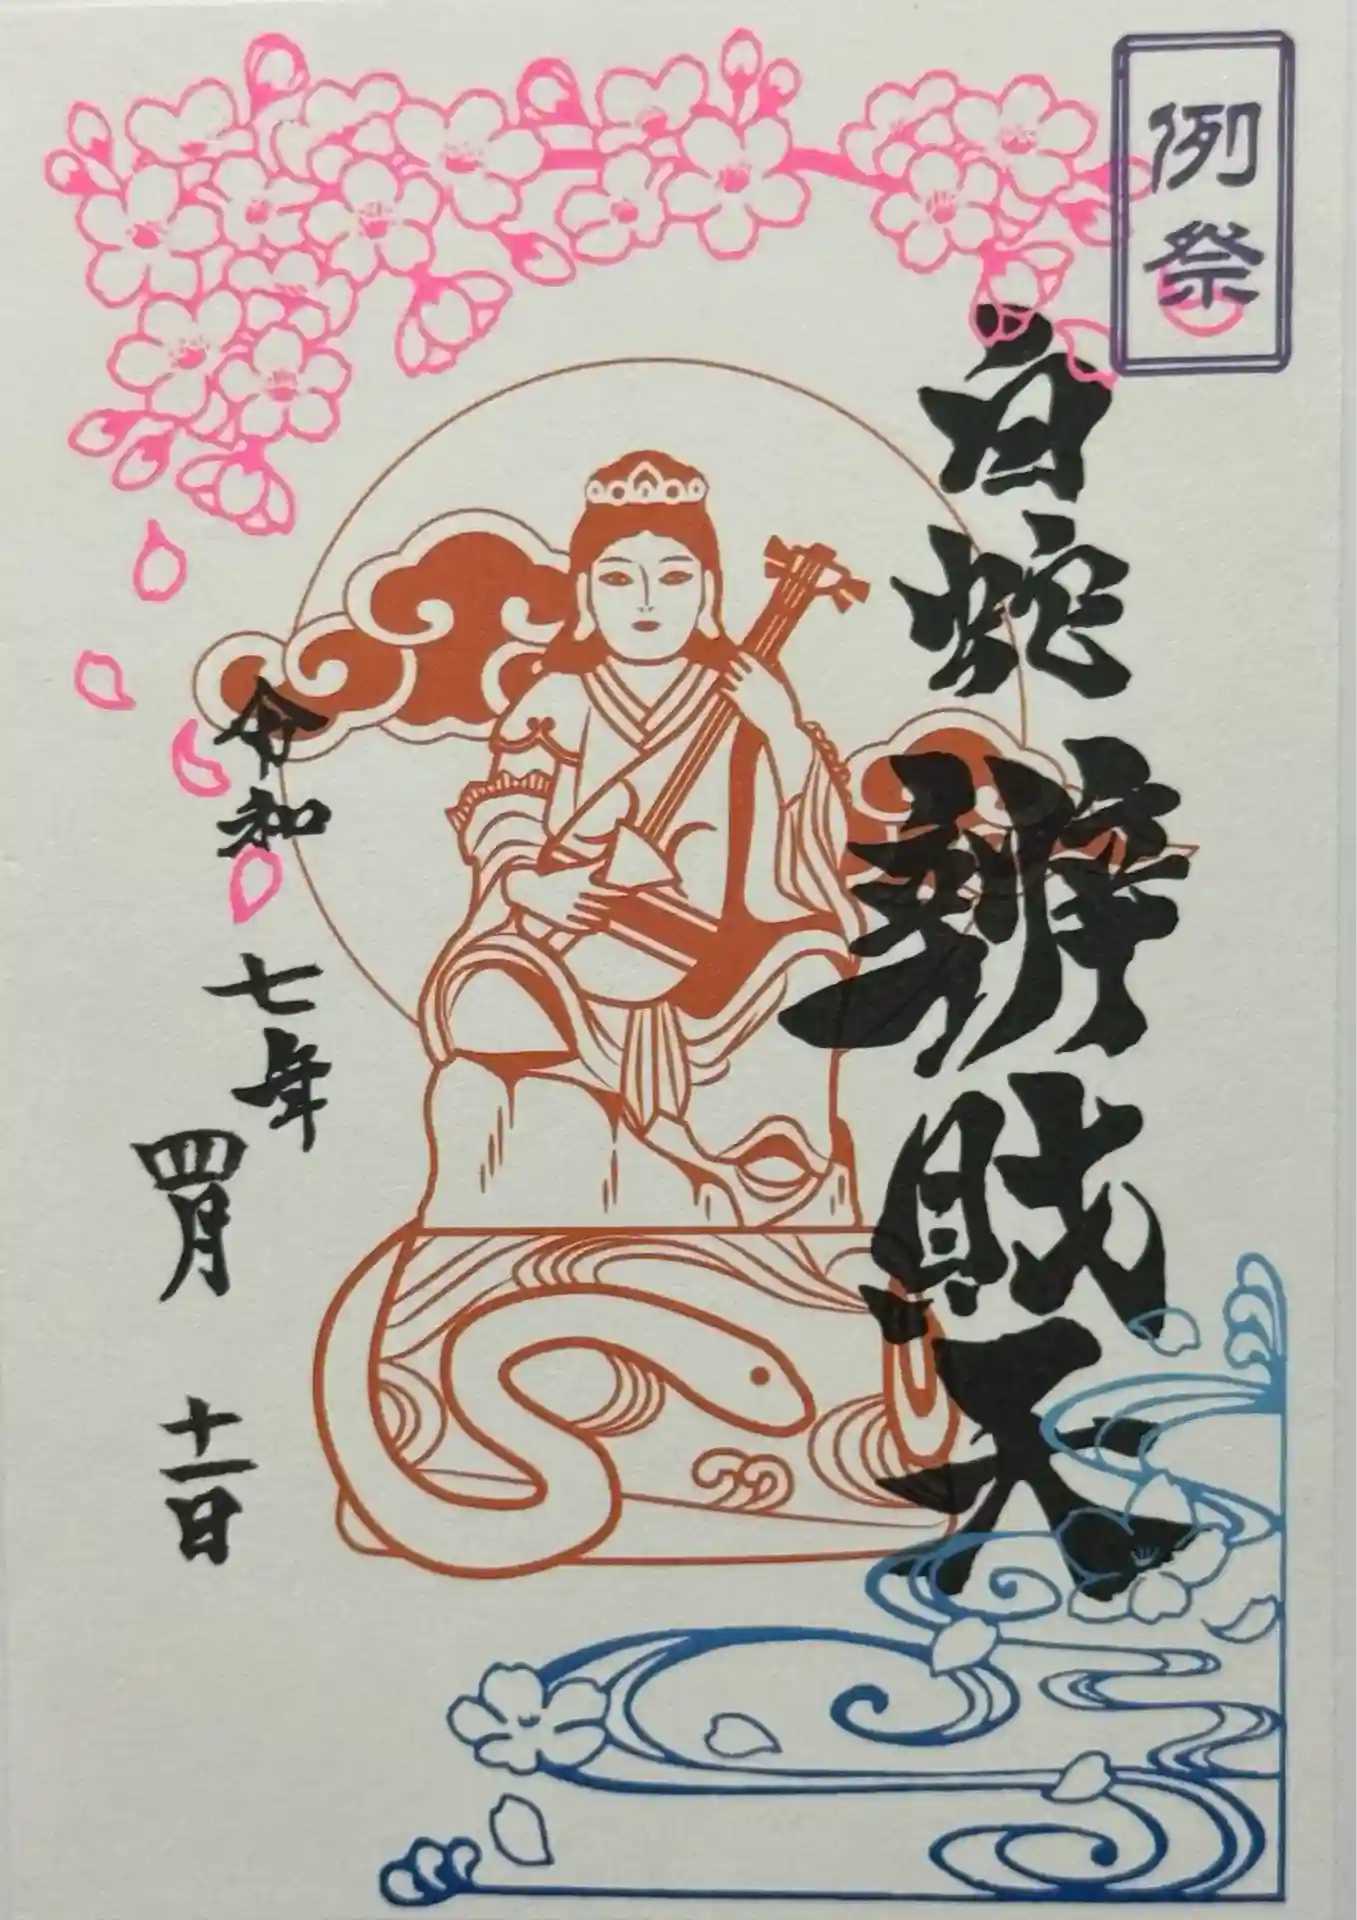 例祭
白蛇辨財天
令和七年
四月十一日